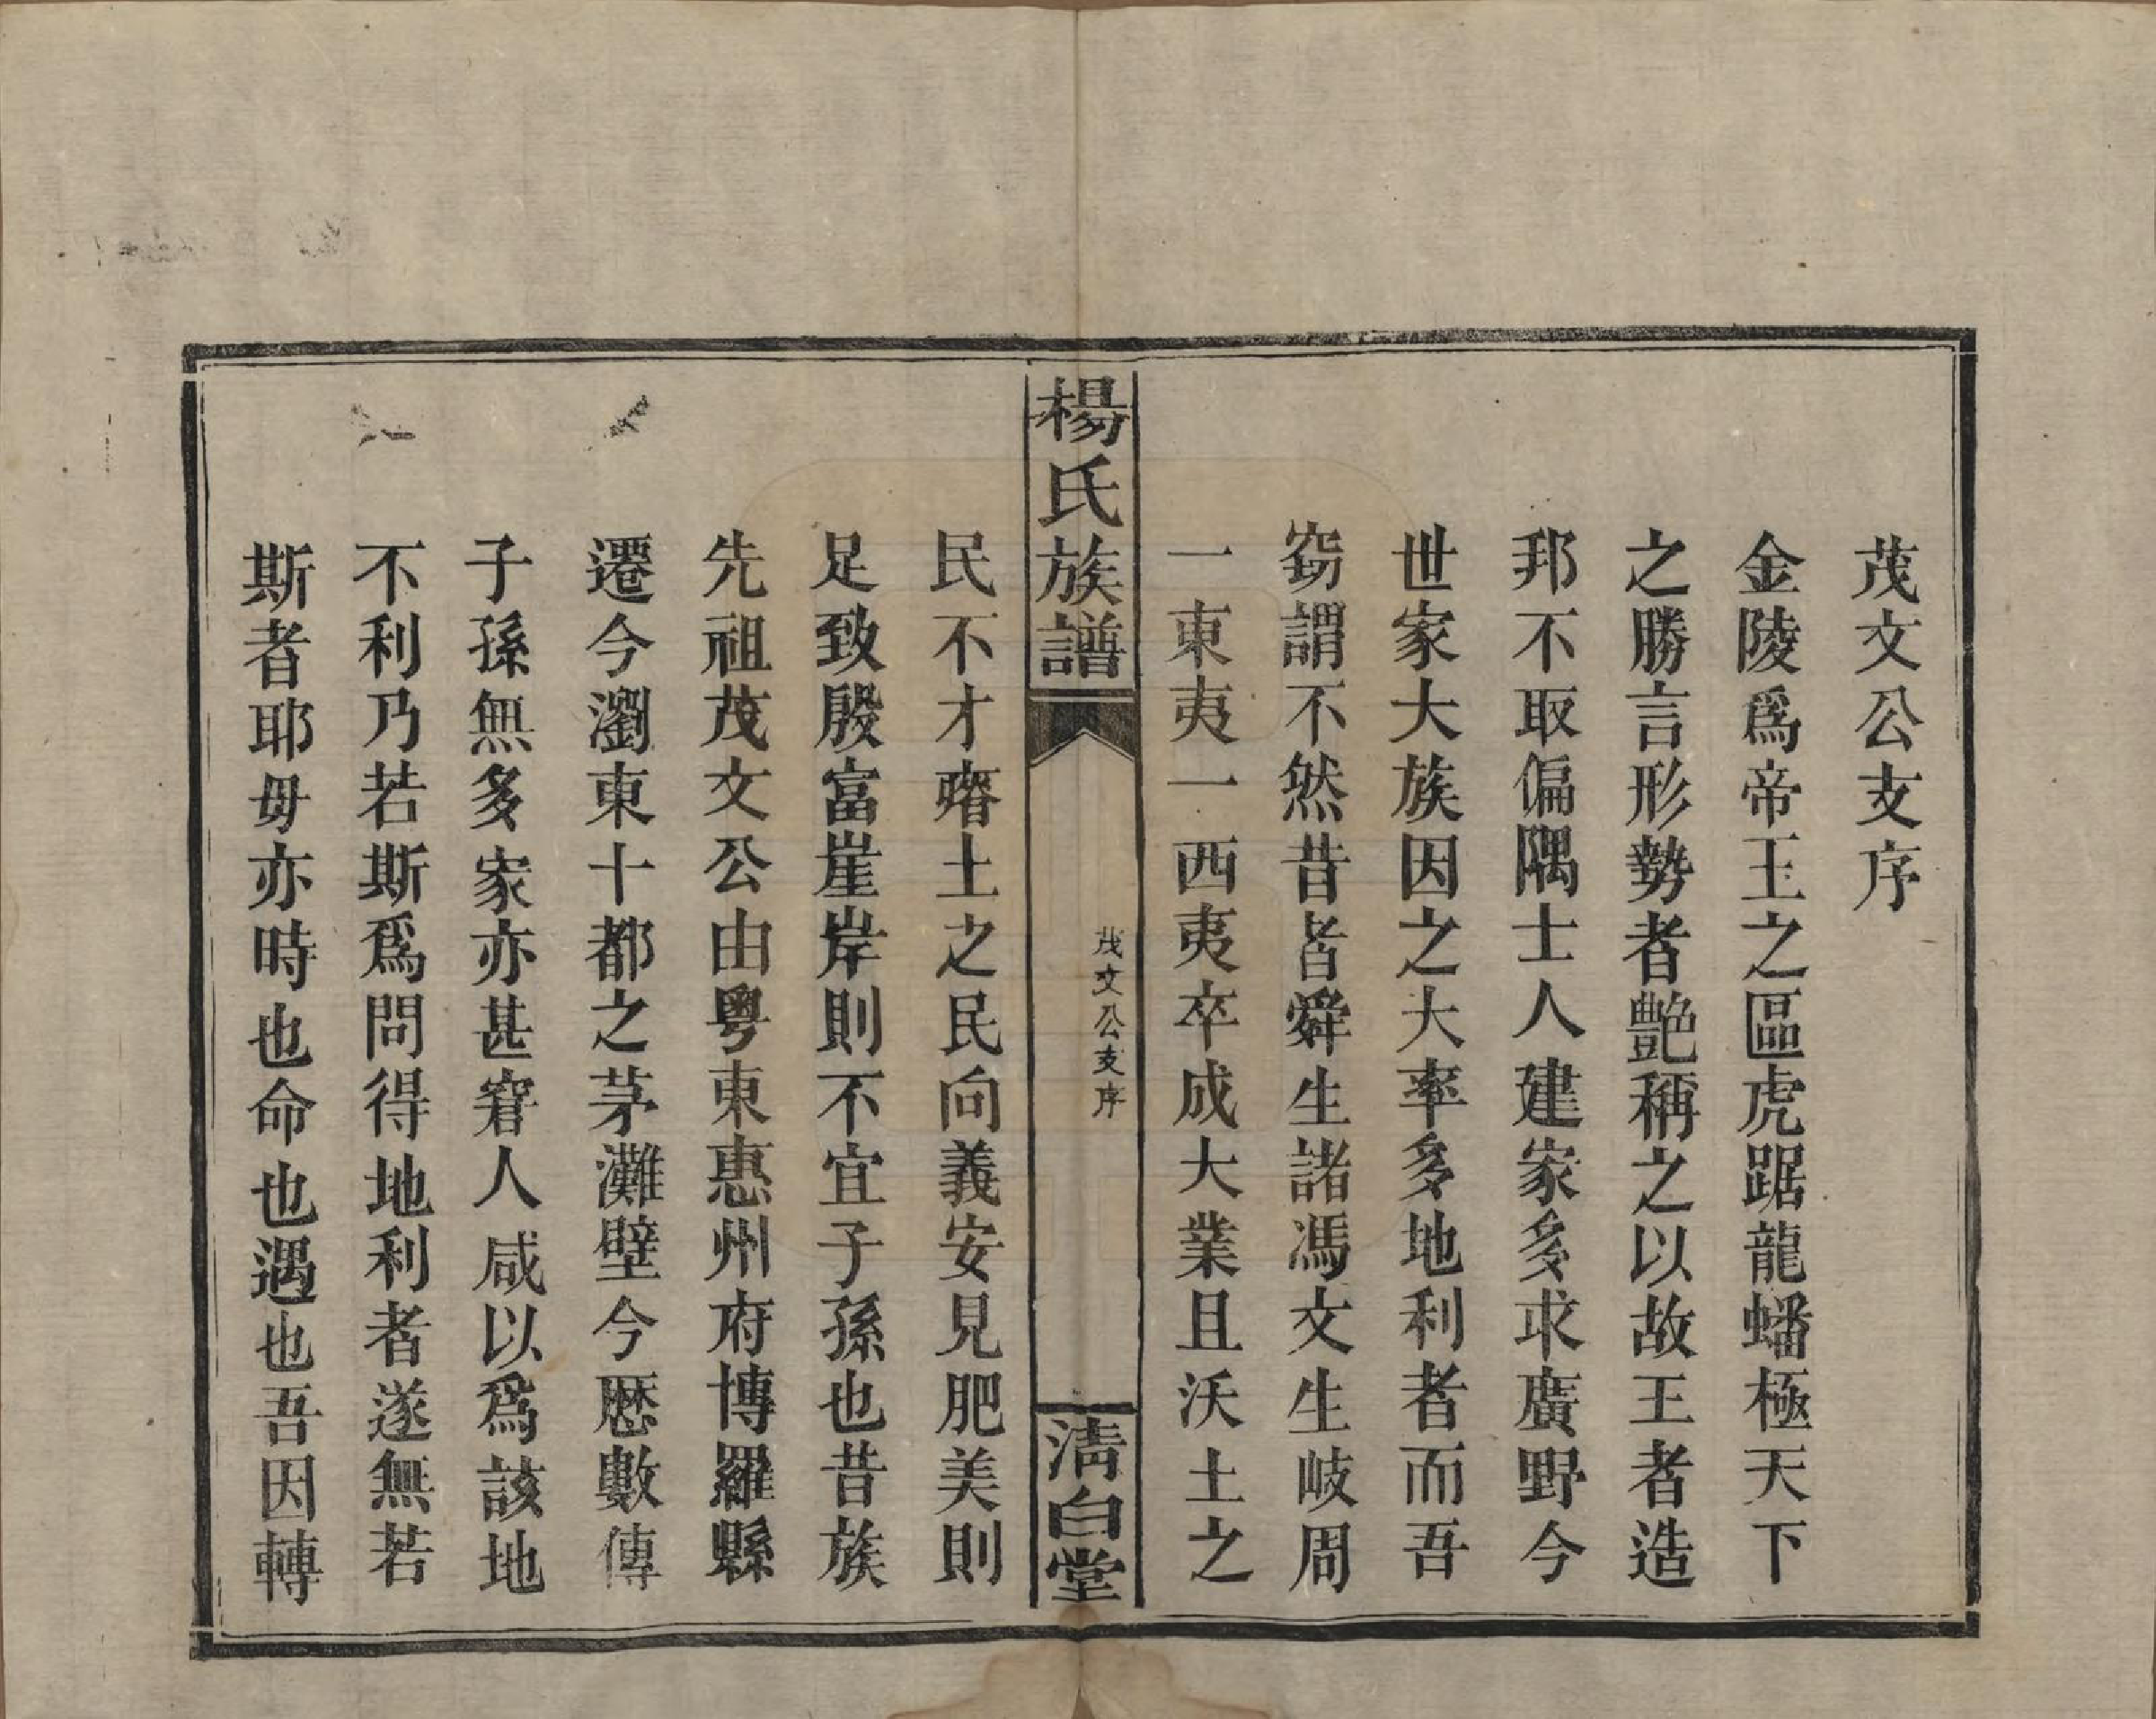 茂文公支序
金陵爲帝王之區虎踞龍蟠極天下
之勝言形勢者艷稱之以故王者造
邦不取偏隅士人建家多求廣野今
世家大族因之大率多地利者而吾
竊謂不然昔者舜生諸馮文生岐周
一東夷一西夷卒成大業且沃土之
楊氏族譜
茂文公支序
清白堂
民不才瘠土之民向義安見肥美則
足致殷富崖岸則不宜子孫也昔族
先祖茂文公由粵東惠州府博羅縣
遷今瀏東十都之茅灘壁今歷數傳
子孫無多家亦甚窘人咸以爲該地
不利乃若斯爲問得地利者遂無若
斯者耶毋亦時也命也遇也吾因轉